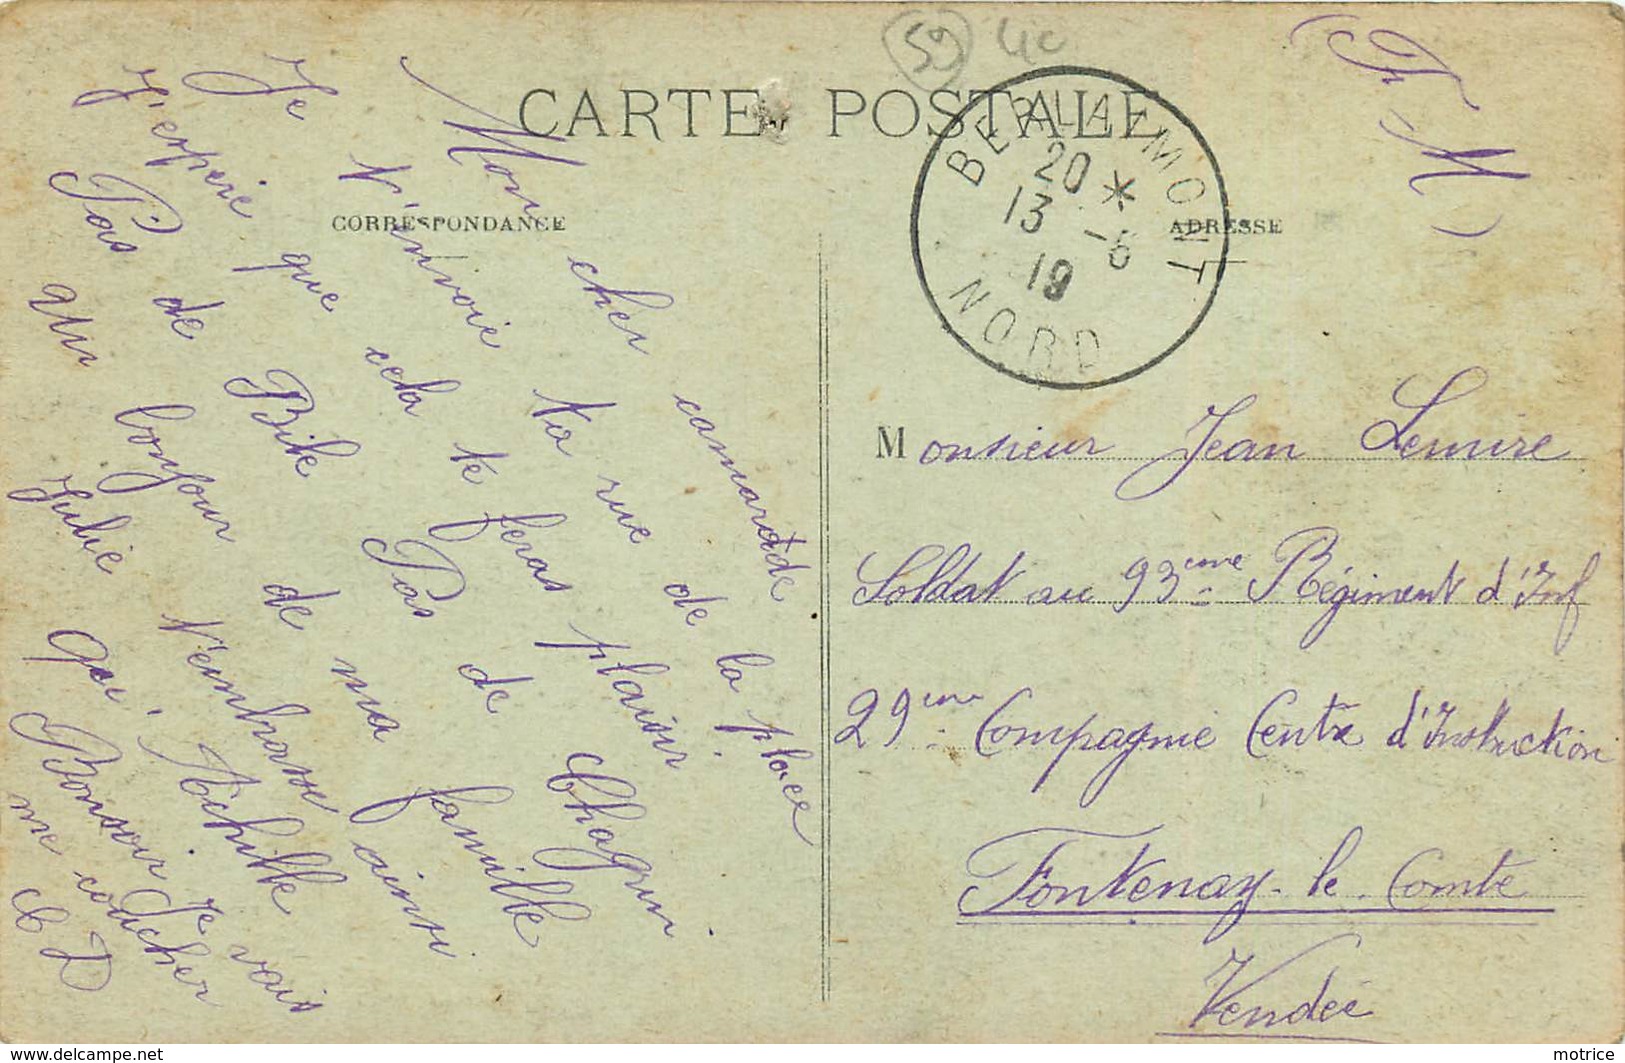 59 4c
CARTE POSTALE
(F. M)
BERLAIMONT
20 *
13 -5
19
NORD
CORRESPONDANCE
ADRESSE
Mon cher camarade
Je t'envoie ta rue de la place
J'espère que cela te feras plaisir
Pas de Bike Pas de Chagrin
Un bonjour de ma famille
Julie t'embrasse ainsi
que, Achille
Bonsoir Je vais
me coucher
C D
Monsieur Jean Lemire
Soldat au 93ème Régiment d'Inf
29ème Compagnie Centre d'Instruction
Fontenay-le-Comte
Vendée
motrice
www.delcampe.net